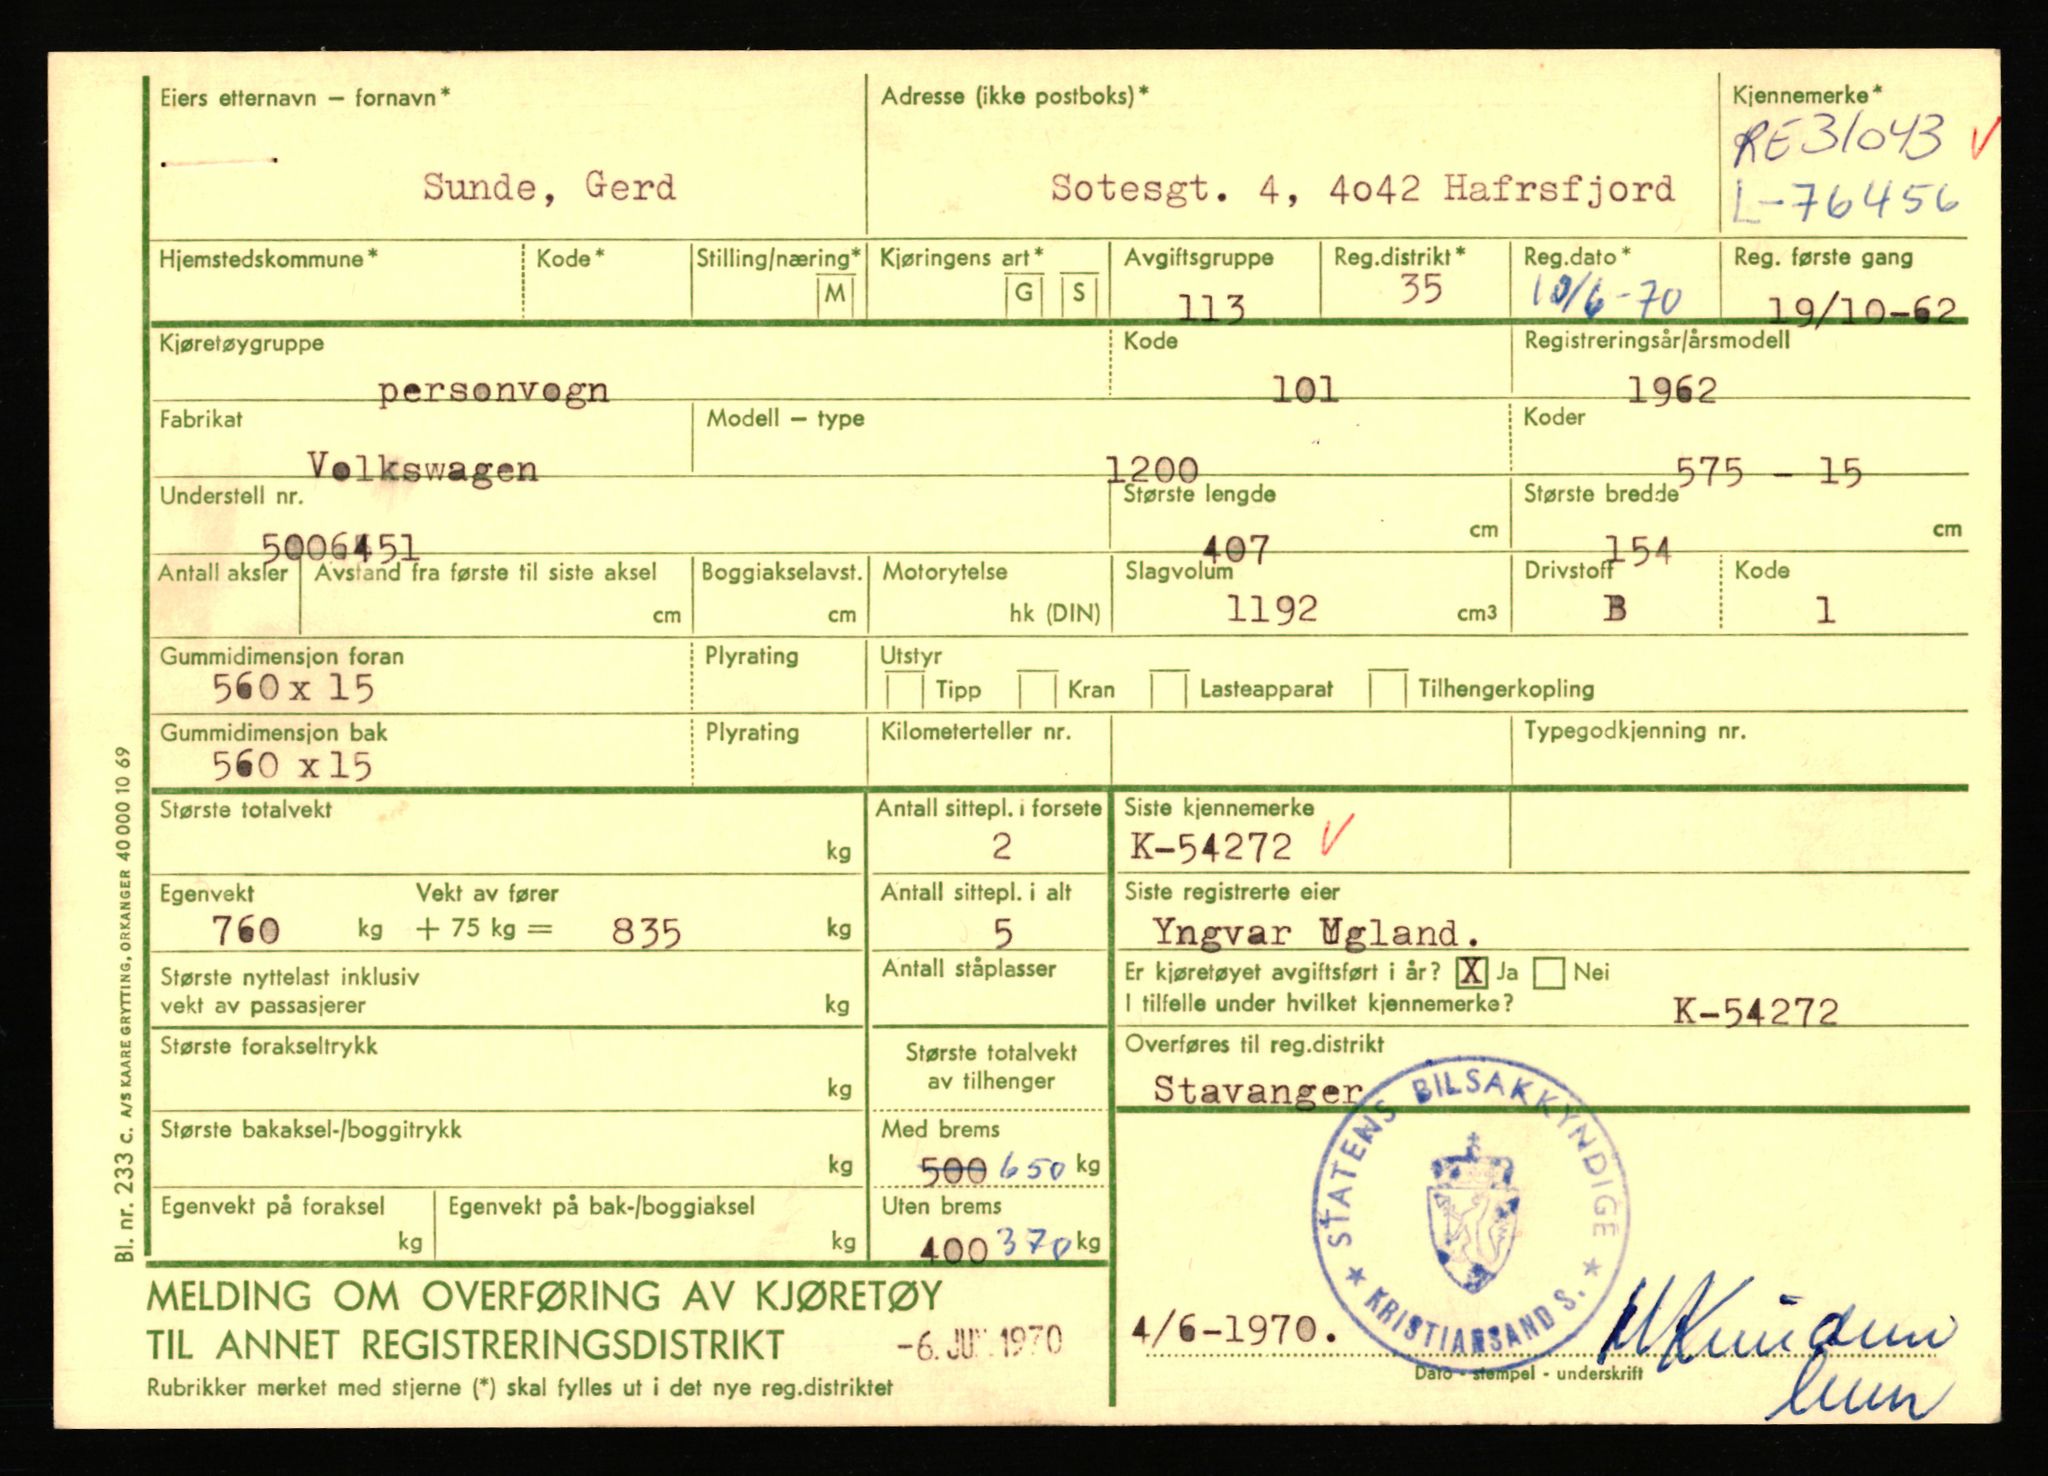 Eiers etternavn – fornavn* Adresse (ikke postboks)* Kjennemerke*
RE31043
Sunde, Gerd Sotesgt. 4, 4o42 Hafrsfjord L-76456
Hjemstedskommune* Kode* Stilling/næring* Kjøringens art* Avgiftsgruppe Reg.distrikt* Reg.dato* Reg. første gang
M G S 113 35 10/6-70 19/10-62
Kjøretøygruppe Kode Registreringsår/årsmodell
personvogn 101 1962
Fabrikat Modell – type Koder
Volkswagen 1200 575 - 15
Understell nr. Største lengde Største bredde
5006451 407 cm 154 cm
Antall aksler Avstand fra første til siste aksel Boggiakselavst. Motorytelse Slagvolum Drivstoff Kode
cm cm hk (DIN) 1192 cm3 B 1
Gummidimensjon foran Plyrating Utstyr
560 x 15 Tipp Kran Lasteapparat Tilhengerkopling
Gummidimensjon bak Plyrating Kilometerteller nr. Typegodkjenning nr.
560 x 15
Største totalvekt Antall sittepl. i forsete Siste kjennemerke
kg 2 K-54272
Egenvekt Vekt av fører Antall sittepl. i alt Siste registrerte eier
760 kg + 75 kg = 835 kg 5 Yngvar Ugland.
Største nyttelast inklusiv Antall ståplasser Er kjøretøyet avgiftsført i år? X Ja Nei
vekt av passasjerer kg I tilfelle under hvilket kjennemerke? K-54272
Største forakseltrykk Største totalvekt Overføres til reg.distrikt
kg av tilhenger Stavanger
Største bakaksel-/boggitrykk Med brems
kg 500 650 kg
Egenvekt på foraksel Egenvekt på bak-/boggiaksel Uten brems
kg kg 400 370 kg
STATENS BILSAKKYNDIGE
KRISTIANSAND S.
MELDING OM OVERFØRING AV KJØRETØY
TIL ANNET REGISTRERINGSDISTRIKT -6. JUN. 1970 4/6-1970.
Rubrikker merket med stjerne (*) skal fylles ut i det nye reg.distriktet Dato - stempel - underskrift
Bl. nr. 233 C. A/S KAARE GRYTTING, ORKANGER 40 000 10 69